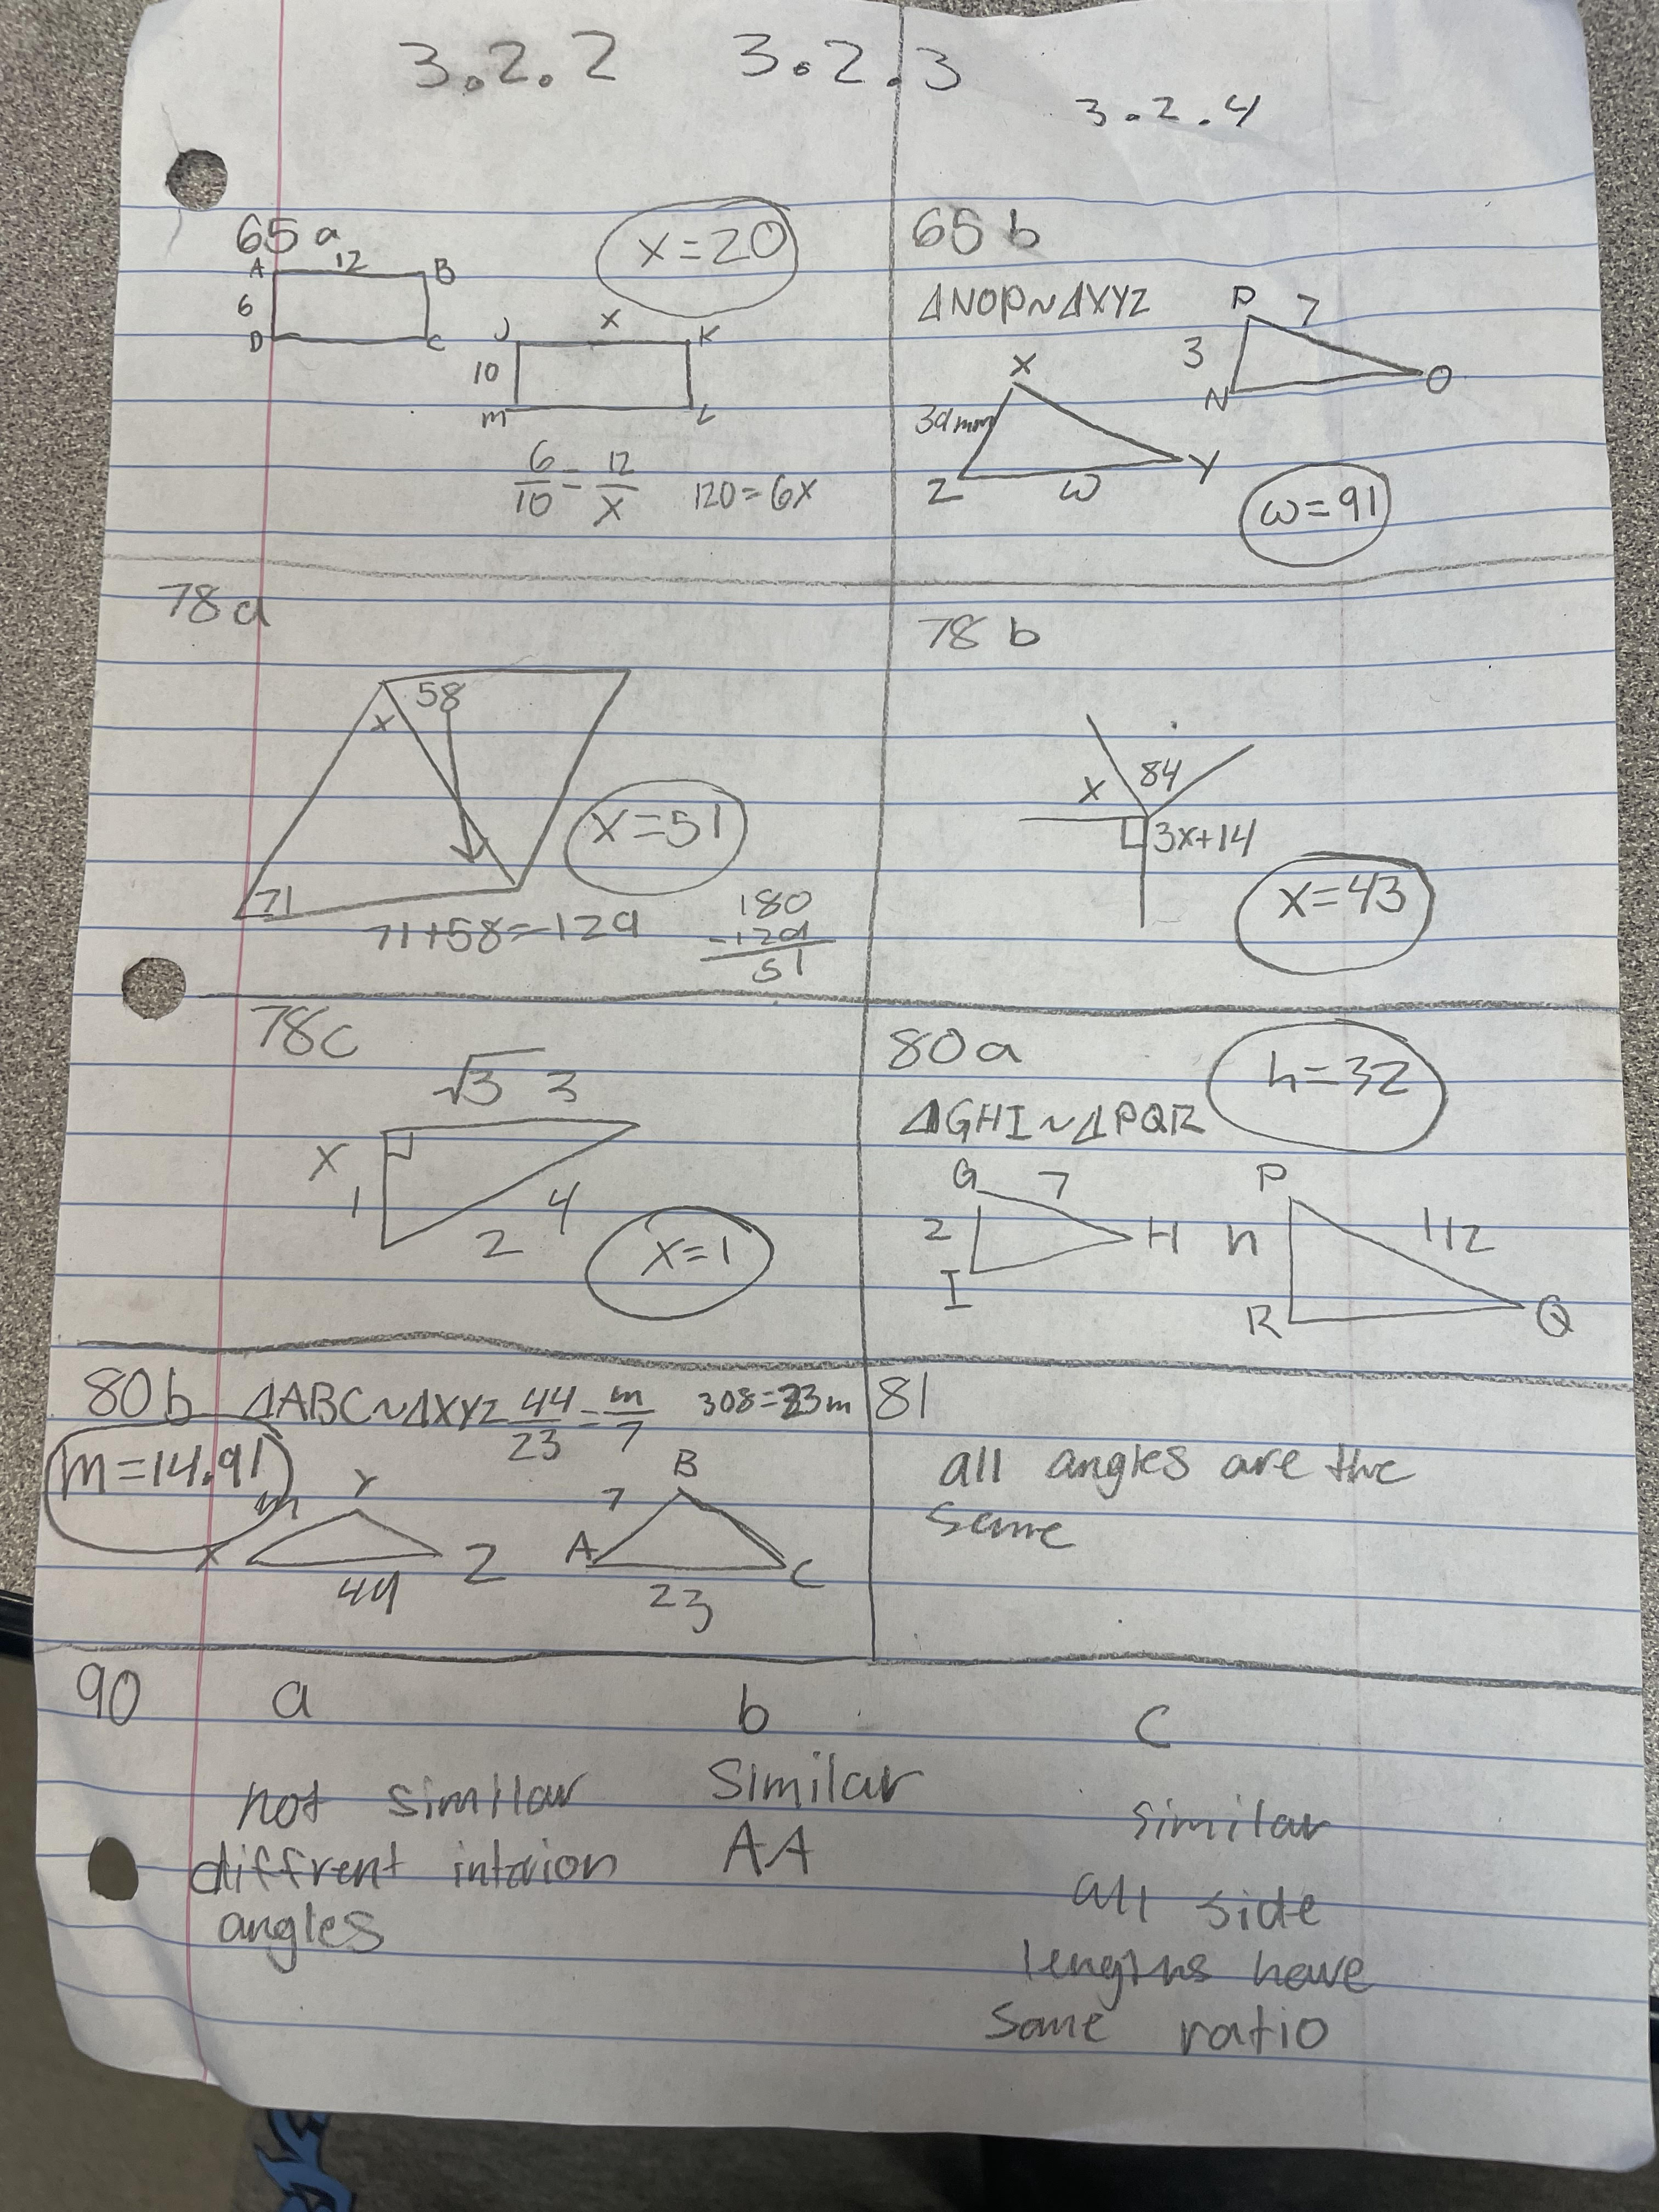 3.2.2 3.2.3 3.2.4
65a
x=20
A 12 B
6
D C
J x K
10
M L
6/10 = 12/x 120=6x
65b
ΔNOP~ΔXYZ
P 7
3
N O
X
39mm
Z w Y
w=91
78a
58
x
71
x=51
71+58=129
180
-129
51
78b
x 84
3x+14
x=43
78c
√3 3
x
1 4
2
x=1
80a
h=32
ΔGHI~ΔPQR
G 7
2 H
I
P
h 112
R Q
80b ΔABC~ΔXYZ 44/23 = m/7 308=23m
m=14.91
m Y
X Z
44
B
7
A C
23
81
all angles are the
same
90 a
not similar
diffrent interion
angles
b
Similar
AA
c
similar
all side
lengths have
same ratio